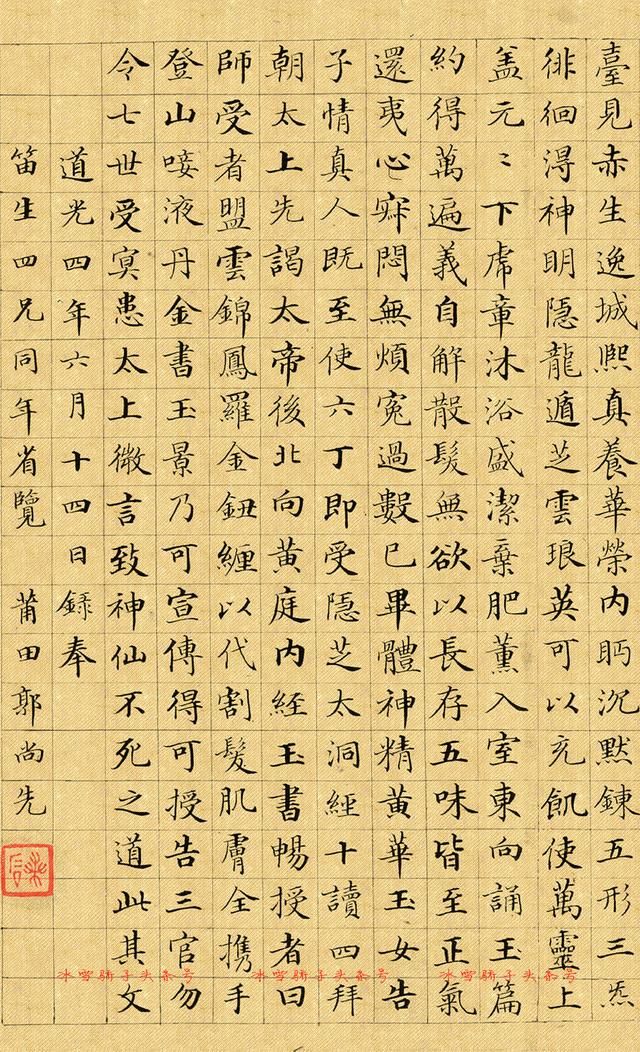 臺見赤生逸城熙真養華榮内眄沉默鍊五形三炁
徘徊淂神明隱龍遁芝雲琅英可以充飢使萬靈上
盖元〻下虎章沐浴盛潔棄肥薰入室東向誦玉篇
約得萬遍義自解散髮無欲以長存五味皆至正氣
還夷心寂悶無煩冤過數已畢體神精黄華玉女告
子情真人既至使六丁即受隱芝太洞經十讀四拜
朝太上先謁太帝後北向黄庭内経玉書暢授者曰
師受者盟雲錦鳳羅金鈕纏以代割髮肌膚全携手
登山唼液丹金書玉景乃可宣傳得可授告三官勿
令七世受冥患太上微言致神仙不死之道此其文
道光四年六月十四日録奉
笛生四兄同年省覽 莆田郭尚先
冰雪骄子头条号 冰雪骄子头条号 冰雪骄子头条号